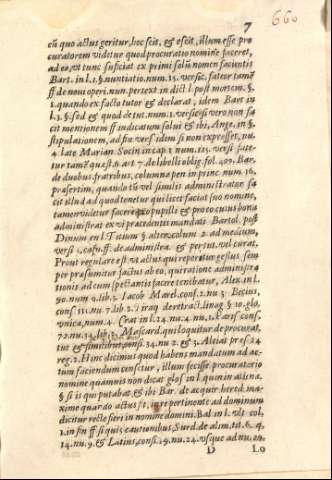 7
660
cũ quo actus geritur, hoc scit, & efcit, illum esse pro
curatorem videtur quod procuratio nomine faceret,
ad eo, vt tunc sufficiat ex primi solũ nomen facientis
Bart. in l. 1. §. nuntiatio. num. 15. versic. fateor tamẽ
ff de noui operi. num. per text. in dict. l. post mortem. §.
1. quando ex facto tutor & declarat, idem Bart in
l. 3. §. sed & quod de tut. num. 1. versic. si vero non fa
cit mentionem ff iudicatum solui & ibi, Ange. in §.
stipulationem, ad fin. vers. idem si non expresset, nu.
4. late Marian. Socin in cap. 1. num. 115. versi. fate-
tur tamẽ quæst. 6. art. 7. de libelli oblig. fol. 409. Bar.
de duobus fratribus, columna pen in princ. num. 16.
præsertim, quando tũ vel similis administrator fa
cit illud ad quod tenetur, qui licet faciat suo nomine,
tamen videtur facere pupilli & pro cuius bona
administrat ex vi præcedentis mandati. Bartol. post
Dinum en l. Titium §. alter. colum 2. ad medium,
versi. casu. ff. de administra. & per tut. vel curat.
Prout regulare est vt actus qui reperitur gestus sem
per præsumitur factus ab eo, qui ratione administra
tionis ad cum spectantis facere tenebatur, Alex. in l.
90. num 9. lib. 3. Iacob Marel. cons. 2. nu 3. Becius,
cons 111. nu. 7 lib 2. Tiraq de retract. linag §. 10. glo,
vnica, num. 4. Crat in l. 24. nu. 4. nu. 1. cæris cons.
72. nu. 34. lib. 3. Mascard. qui loquitur de procurat,
tut & similibus consi. 34. nu. 2. & 3. Alciat præs. 24
reg. 2. Hinc dicimus quod habens mandatum ad ac-
tum faciendum censetur, illum fecisse procuratorio
nomine quamuis non dicat glos in l. quin in aliena,
§ si is qui putabat, & ibi Bar. de acquir. hered. ma-
xime quando actus fit, in re pertinente ad dominum
dicitur recte fieri in nomine domini. Bal. in l. vlt. col,
1. in fin ff si quis cautionibus, Surd. de alim. tit. 6. q.
14. nu. 9. & Latius, consi. 29. nu. 24. vsque ad nu. 29.
D Lo